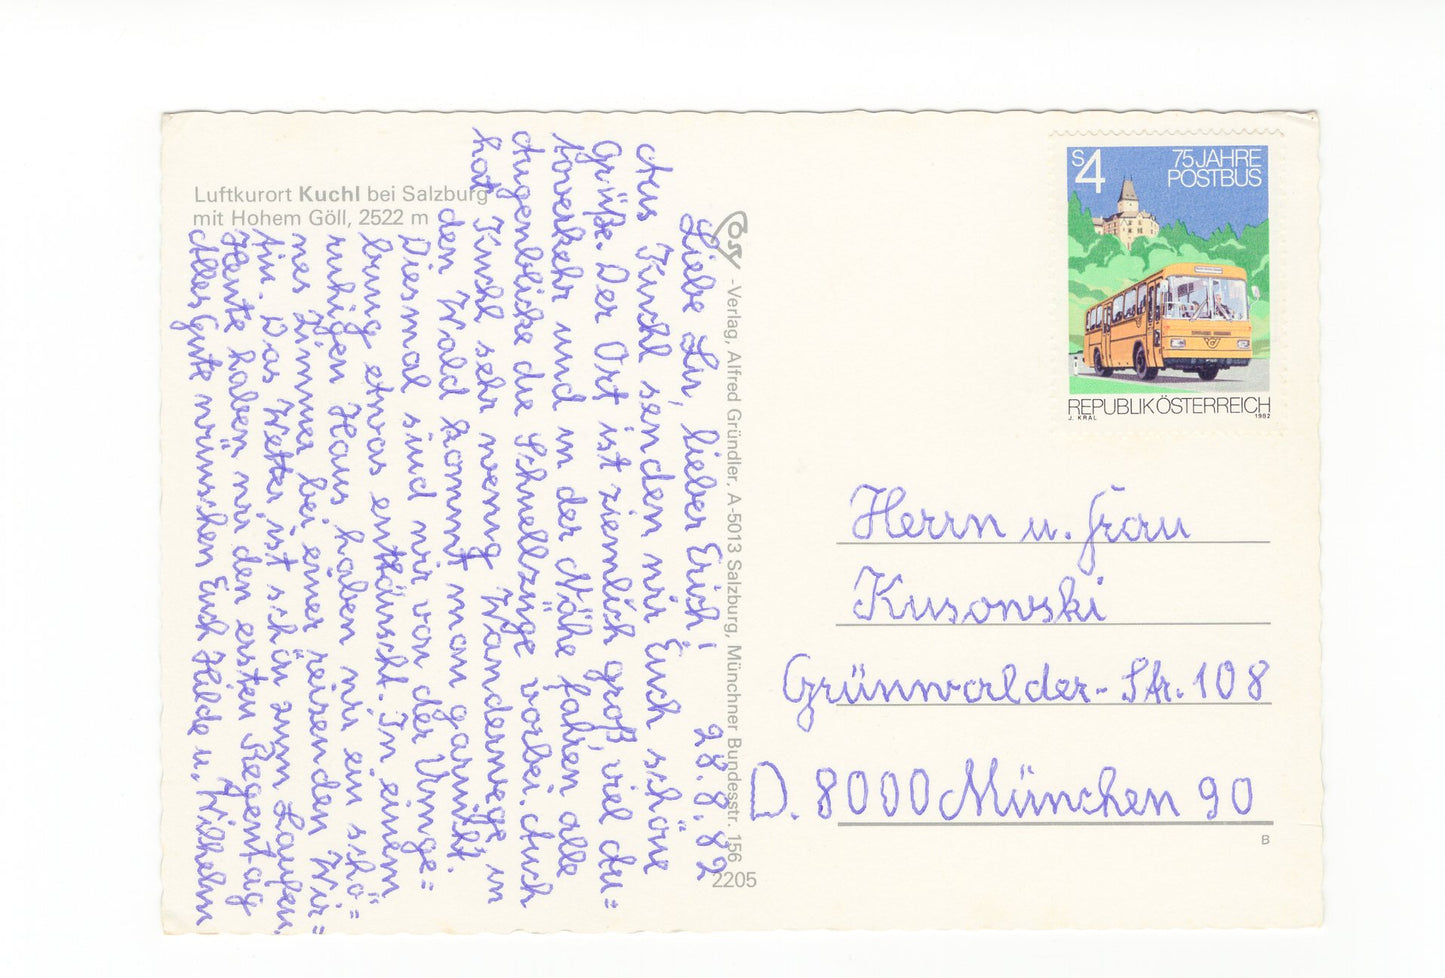 Luftkurort Kuchl bei Salzburg
mit Hohem Göll, 2522 m
28.8.82
Liebe Lu, lieber Erich!
Aus Kuchl senden wir Euch schöne
Grüße. Der Ort ist ziemlich groß viel Au=
toverkehr und in der Nähe fahren alle
Augenblicke die Schnellzüge vorbei. Auch
hat Kuchl sehr wenig Wanderwege, in
den Wald kommt man garnicht.
Diesmal sind wir von der Umge=
bung etwas enttäuscht. In einem
ruhigen Haus haben wir ein schö=
nes Zimmer bei einer reisenden Wir=
tin. Das Wetter ist schön zum Laufen.
Heute haben wir den ersten Regentag
Alles Gute wünschen Euch Hilde u. Wilhelm
-Verlag, Alfred Gründler, A-5013 Salzburg, Münchner Bundesstr. 156
2205
S4
75 JAHRE
POSTBUS
REPUBLIK ÖSTERREICH
J. KRAL 1982
Herrn u. Frau
Kusowski
Grünwalder-Str. 108
D. 8000 München 90
B